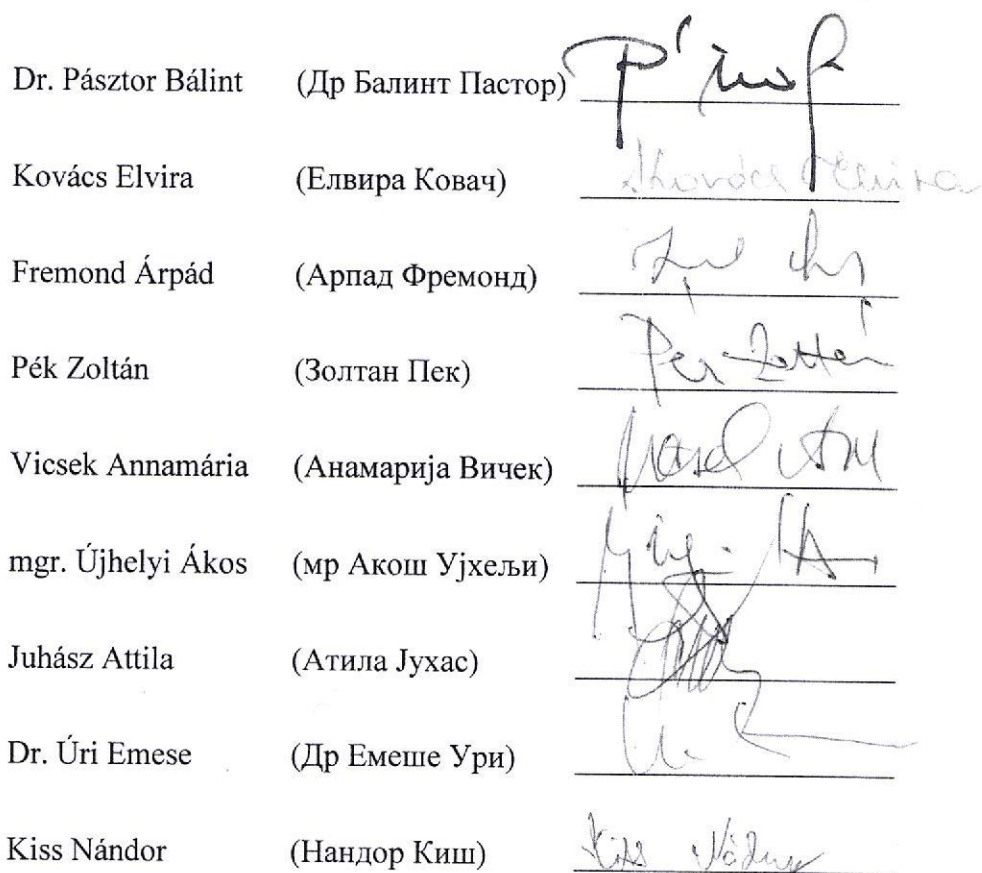 Dr. Pásztor Bálint (Др Балинт Пастор)
Kovács Elvira (Елвира Ковач) Kovács Elvira
Fremond Árpád (Арпад Фремонд)
Pék Zoltán (Золтан Пек) Pék Zoltán
Vicsek Annamária (Анамарија Вичек)
mgr. Újhelyi Ákos (мр Акош Ујхељи)
Juhász Attila (Атила Јухас)
Dr. Úri Emese (Др Емеше Ури)
Kiss Nándor (Нандор Киш) Kiss Nándor